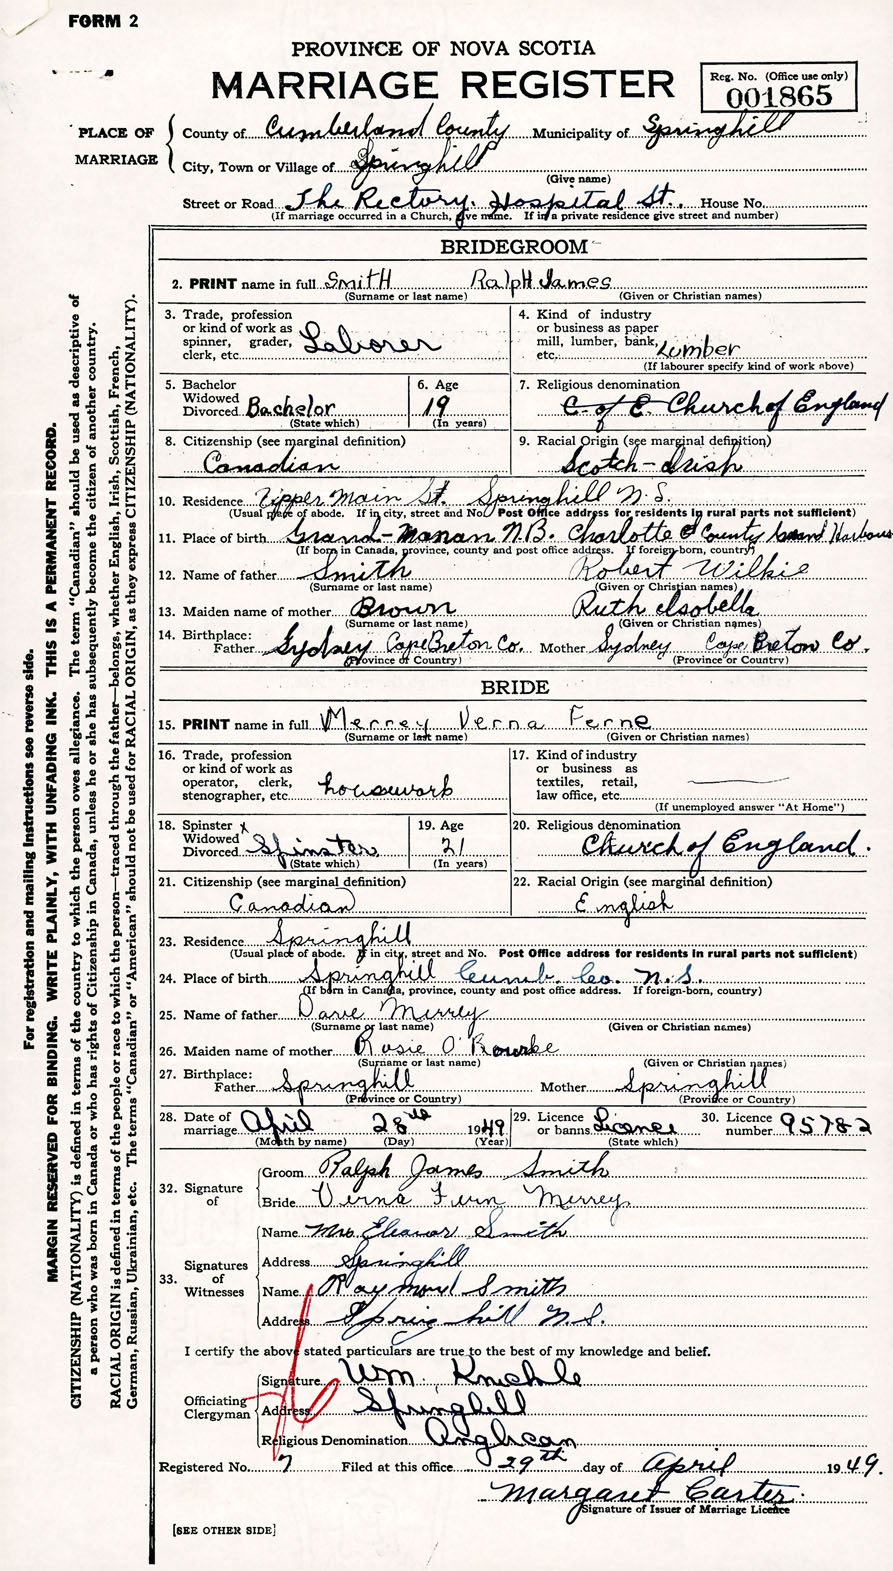 FORM 2
PROVINCE OF NOVA SCOTIA
MARRIAGE REGISTER
Reg. No. (Office use only)
001865
PLACE OF MARRIAGE
County of Cumberland County Municipality of Springhill
City, Town or Village of Springhill
(Give name)
Street or Road The Rectory. Hospital St., House No.
(If marriage occurred in a Church, give name. If in a private residence give street and number)
BRIDEGROOM
2. PRINT name in full Smith Ralph James
(Surname or last name) (Given or Christian names)
3. Trade, profession or kind of work as spinner, grader, clerk, etc. Laborer
4. Kind of industry or business as paper mill, lumber, bank, etc. Lumber
(If labourer specify kind of work above)
5. Bachelor Widowed Divorced Bachelor
(State which)
6. Age 19
(In years)
7. Religious denomination
C. of E. Church of England
8. Citizenship (see marginal definition)
Canadian
9. Racial Origin (see marginal definition)
Scotch-Irish
10. Residence Upper Main St. Springhill N.S.
(Usual place of abode. If in city, street and No. Post Office address for residents in rural parts not sufficient)
11. Place of birth Grand-Manan N.B. Charlotte County Grand Harbour
(If born in Canada, province, county and post office address. If foreign-born, country)
12. Name of father Smith Robert Wilkie
(Surname or last name) (Given or Christian names)
13. Maiden name of mother Brown Ruth Isobella
(Surname or last name) (Given or Christian names)
14. Birthplace:
Father Sydney Cape Breton Co. Mother Sydney Cape Breton Co.
(Province or Country) (Province or Country)
BRIDE
15. PRINT name in full Merrey Verna Ferne
(Surname or last name) (Given or Christian names)
16. Trade, profession or kind of work as operator, clerk, stenographer, etc. housework
17. Kind of industry or business as textiles, retail, law office, etc.
(If unemployed answer "At Home")
18. Spinster x Widowed Divorced Spinster
(State which)
19. Age 21
(In years)
20. Religious denomination
Church of England.
21. Citizenship (see marginal definition)
Canadian
22. Racial Origin (see marginal definition)
English
23. Residence Springhill
(Usual place of abode. If in city, street and No. Post Office address for residents in rural parts not sufficient)
24. Place of birth Springhill Cumb. Co. N.S.
(If born in Canada, province, county and post office address. If foreign-born, country)
25. Name of father Dave Merrey
(Surname or last name) (Given or Christian names)
26. Maiden name of mother Rosie O'Rourke
(Surname or last name) (Given or Christian names)
27. Birthplace:
Father Springhill Mother Springhill
(Province or Country) (Province or Country)
28. Date of marriage April 28th 1949
(Month by name) (Day) (Year)
29. Licence or banns Licence
(State which)
30. Licence number 95782
32. Signature of
Groom Ralph James Smith
Bride Verna Fern Merrey
33. Signatures of Witnesses
Name Mrs Eleanor Smith
Address Springhill
Name Raymond Smith
Address Spring hill N.S.
I certify the above stated particulars are true to the best of my knowledge and belief.
Officiating Clergyman
Signature Wm.
Address Springhill
Religious Denomination Anglican
Registered No. 7 Filed at this office 29th day of April 1949.
Margaret Carter.
Signature of Issuer of Marriage Licence
[SEE OTHER SIDE]
For registration and mailing instructions see reverse side.
MARGIN RESERVED FOR BINDING. WRITE PLAINLY, WITH UNFADING INK. THIS IS A PERMANENT RECORD.
CITIZENSHIP (NATIONALITY) is defined in terms of the country to which the person owes allegiance. The term "Canadian" should be used as descriptive of
a person who was born in Canada or who has rights of Citizenship in Canada, unless he or she has subsequently become the citizen of another country.
RACIAL ORIGIN is defined in terms of the people or race to which the person—traced through the father—belongs, whether English, Irish, Scottish, French,
German, Russian, Ukrainian, etc. The terms "Canadian" or "American" should not be used for RACIAL ORIGIN, as they express CITIZENSHIP (NATIONALITY).